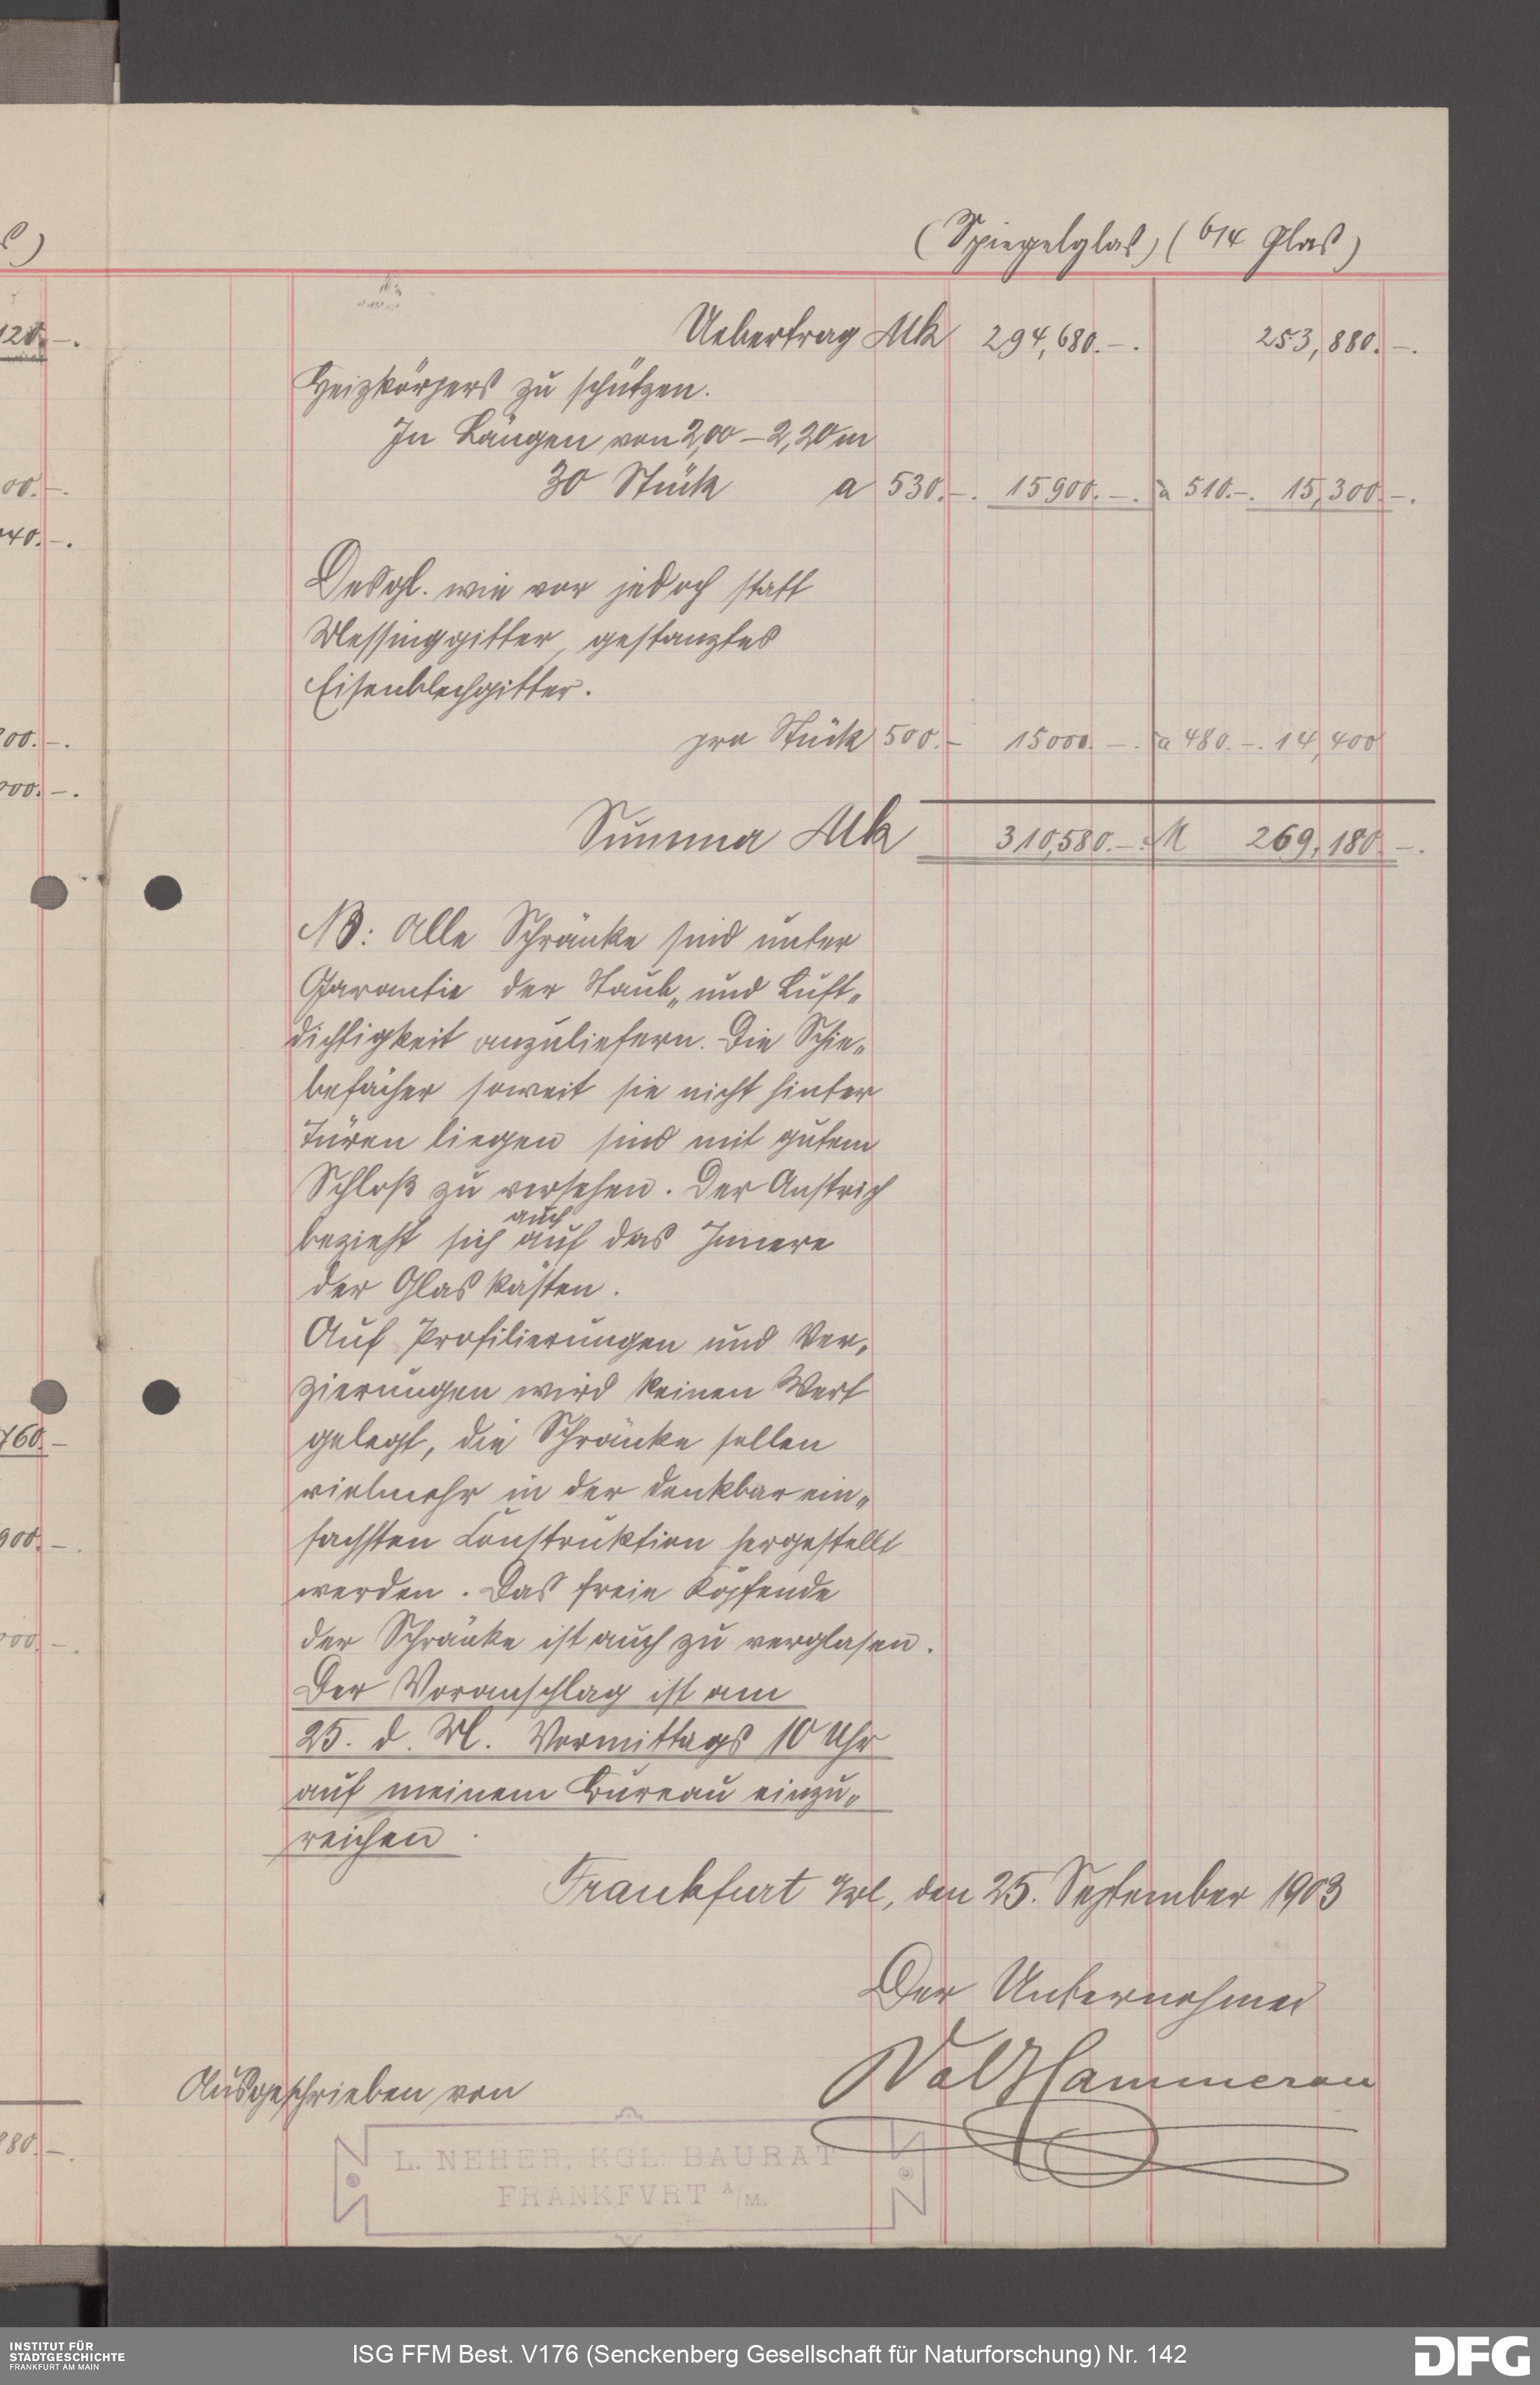 (Spiegelglas) (6/4 Glas)
Uebertrag Mk 294,680.-. 253,880.-.
Heizkörpers zu schützen.
In Längen von 2,00 – 2,20 m
30 Stück a 530.-. 15900.-. à 510.-. 15,300.-.
Desgl. wie vor jedoch statt
Messinggitter, gestanztes
Eisenblechgitter.
pro Stück 500.- 15000.-. à 480.-. 14,400
Summa Mk 310,580.-. M 269,180.-.
NB: Alle Schränke sind unter
Garantie der Staub„ und Luft„
dichtigkeit anzuliefern. Die Schie„
befächer soweit sie nicht hinter
Türen liegen sind mit gutem
Schloß zu versehen. Der Anstrich
auch
bezieht sich auf das Innere
der Glaskästen.
Auf Profilierungen und Ver„
zierungen wird keinen Wert
gelegt, die Schränke sollen
vielmehr in der denkbar ein„
fachsten Construktion hergestellt
werden. Das freie Kopfende
der Schränke ist auch zu verglasen.
Der Voranschlag ist am
25. d. M. Vormittags 10 Uhr
auf meinem Bureau einzu„
reichen.
Frankfurt a/M, den 25. September 1903
Der Unternehmer
Val Hammeran
Ausgeschrieben von
L. NEHER, KGL. BAURAT
FRANKFVRT A/M.
S)
120.-.
00.-.
40.-.
00.-.
000.-.
760.-
900.-.
000.-.
880.-.
INSTITUT FÜR
STADTGESCHICHTE
FRANKFURT AM MAIN
ISG FFM Best. V176 (Senckenberg Gesellschaft für Naturforschung) Nr. 142
DFG